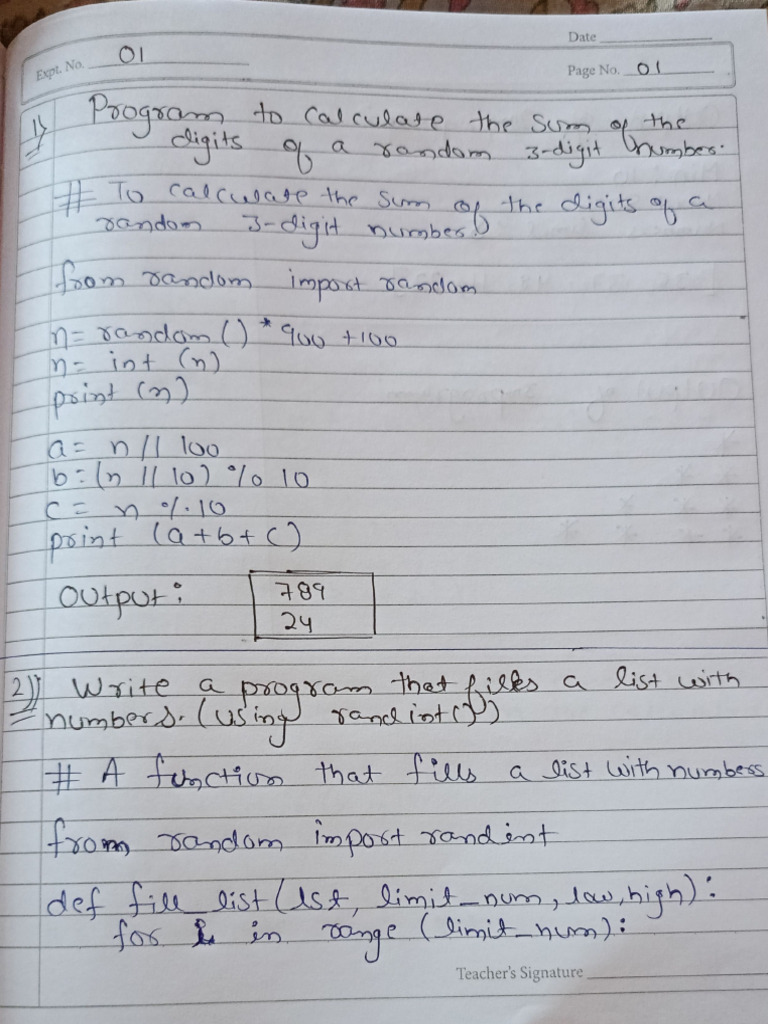 Date
Expt. No. 01
Page No. 01
1) Program to calculate the sum of the
digits of a random 3-digit number.
# To calculate the sum of the digits of a
random 3-digit number.
from random import random
n= random() * 900 +100
n= int (n)
print (n)
a= n// 100
b=(n // 10) % 10
c= n %.10
print (a+b+c)
Output:
789
24
2) Write a program that fills a list with
numbers. (using randint())
# A function that fills a list with numbers
from random import randint
def fill_list(lst, limit_num, low, high):
for i in range (limit_num):
Teacher's Signature